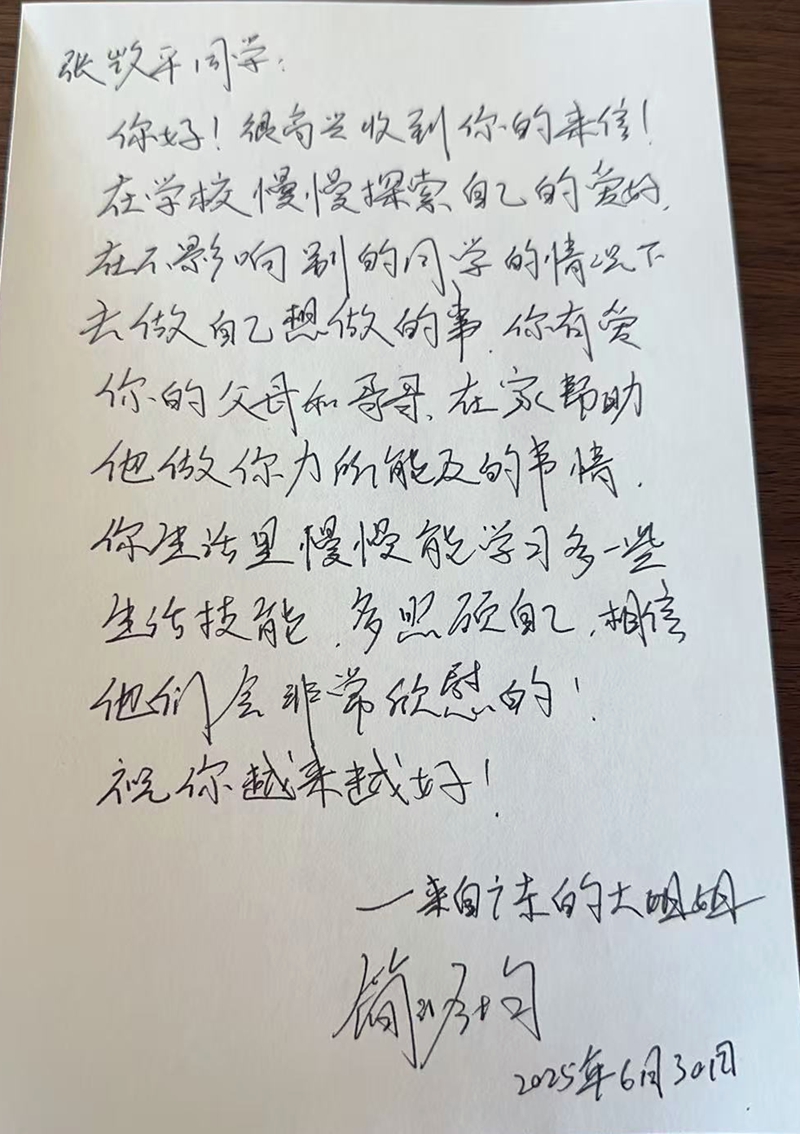 张平同学:
你好!很高兴收到你的来信!
在学校慢慢探索自己的爱好,
在不影响别的同学的情况下
去做自己想做的事.你有爱
你的父母和哥哥、在家帮助
他做你力所能及的事情.
你生活里慢慢能学习多一些
生活技能.多照顾自己.相信
他们会非常欣慰的!
祝你越来越好!
—来自广东的大姐姐
简均
2025年6月30日